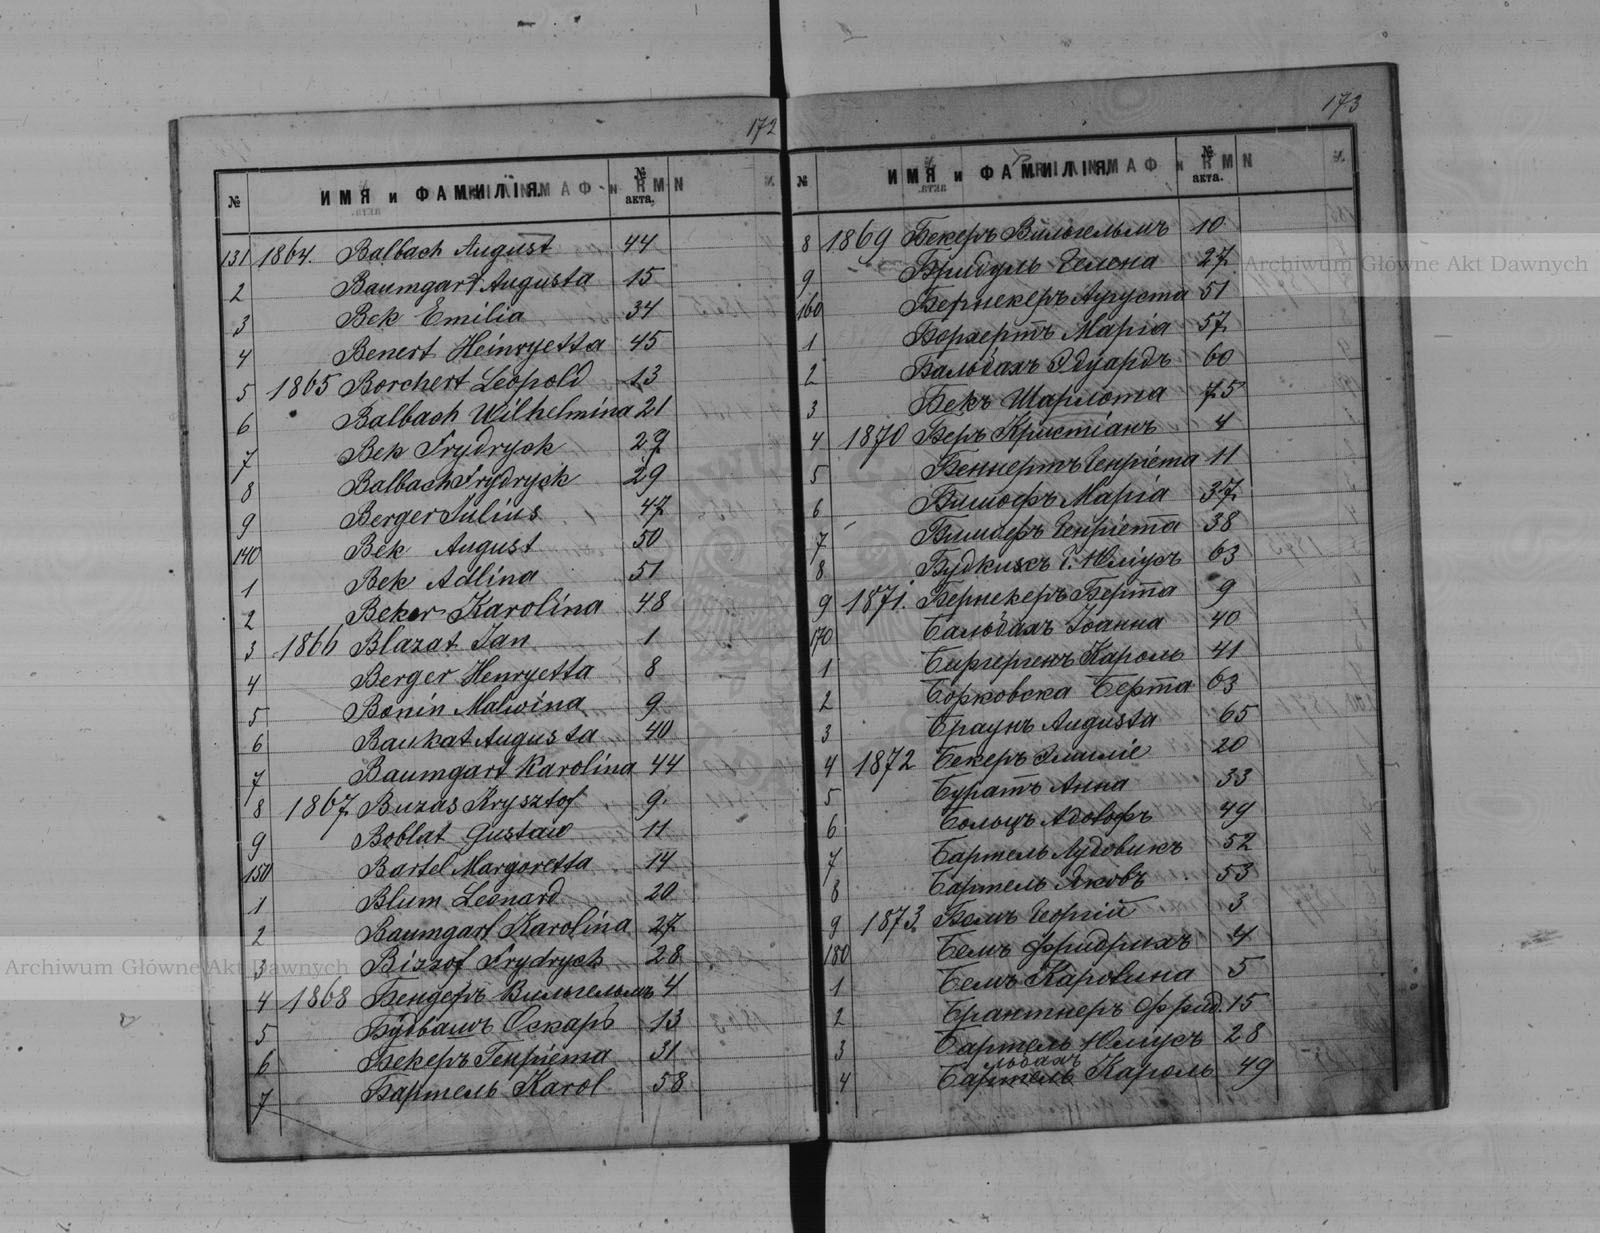 172
№ ИМЯ и ФАМИЛІЯ. № акта.
131 1864. Balbach August 44
2 Baumgart Augusta 15
3 Bek Emilia 34
4 Benert Heinryetta 45
5 1865 Borchert Leopold 13
6 Balbach Wilhelmina 21
7 Bek Frydryck 29
8 Balbach Frydryck 29
9 Berger Julius 47
140 Bek August 50
1 Bek Adlina 51
2 Beker Karolina 48
3 1866 Blazat Jan 1
4 Berger Henryetta 8
5 Bonin Malwina 9
6 Baukat Augusta 40
7 Baumgart Karolina 44
8 1867 Buzas Krysztof 9.
9 Boblat Gustaw 11
150 Bartel Margoretta 14
1 Blum Leonard 20
2 Baumgart Karolina 27
3 Biszof Frydrych 28
4 1868 Бендеръ Вильгельмъ 4
5 Оскаръ 13
6 Бекеръ Генріета 31
7 Бартель Karol 58
173
№ ИМЯ и ФАМИЛІЯ. № акта.
8 1869 Бекеръ Вильгельмъ 10
9 Гелена 27
160 Бернекеръ Аугуста 51
1 Борхертъ Марія 57
2 Бальбахъ Эдуардъ 60
3 Бекъ Шарлота 75
4 1870 Беръ Кристіанъ 4
5 Беннертъ Генріета 11
6 Бишофъ Марія 37
7 Бишофъ Генріета 38
8 Юліусъ 63
9 1871. Бернекеръ Берта 9
170 Бальбахъ Іоанна 40
1 Кароль 41
2 Борковска Берта 63
3 Браунъ Augusta 65
4 1872 Бекеръ Эмиліе 20
5 Буратъ Анна 33
6 Больцъ Адольфъ 49
7 Бартель Лудовикъ 52
8 Бартель Яковъ 53
9 1873 Бемъ Георгій 3
180 Бемъ Фридрихъ 4
1 Бемъ Каролина 5
2 Брантнеръ Фрид. 15
3 Бартель Юліусъ 28
льбахъ
4 Бартель Кароль 49
Archiwum Główne Akt Dawnych
Archiwum Główne Akt Dawnych